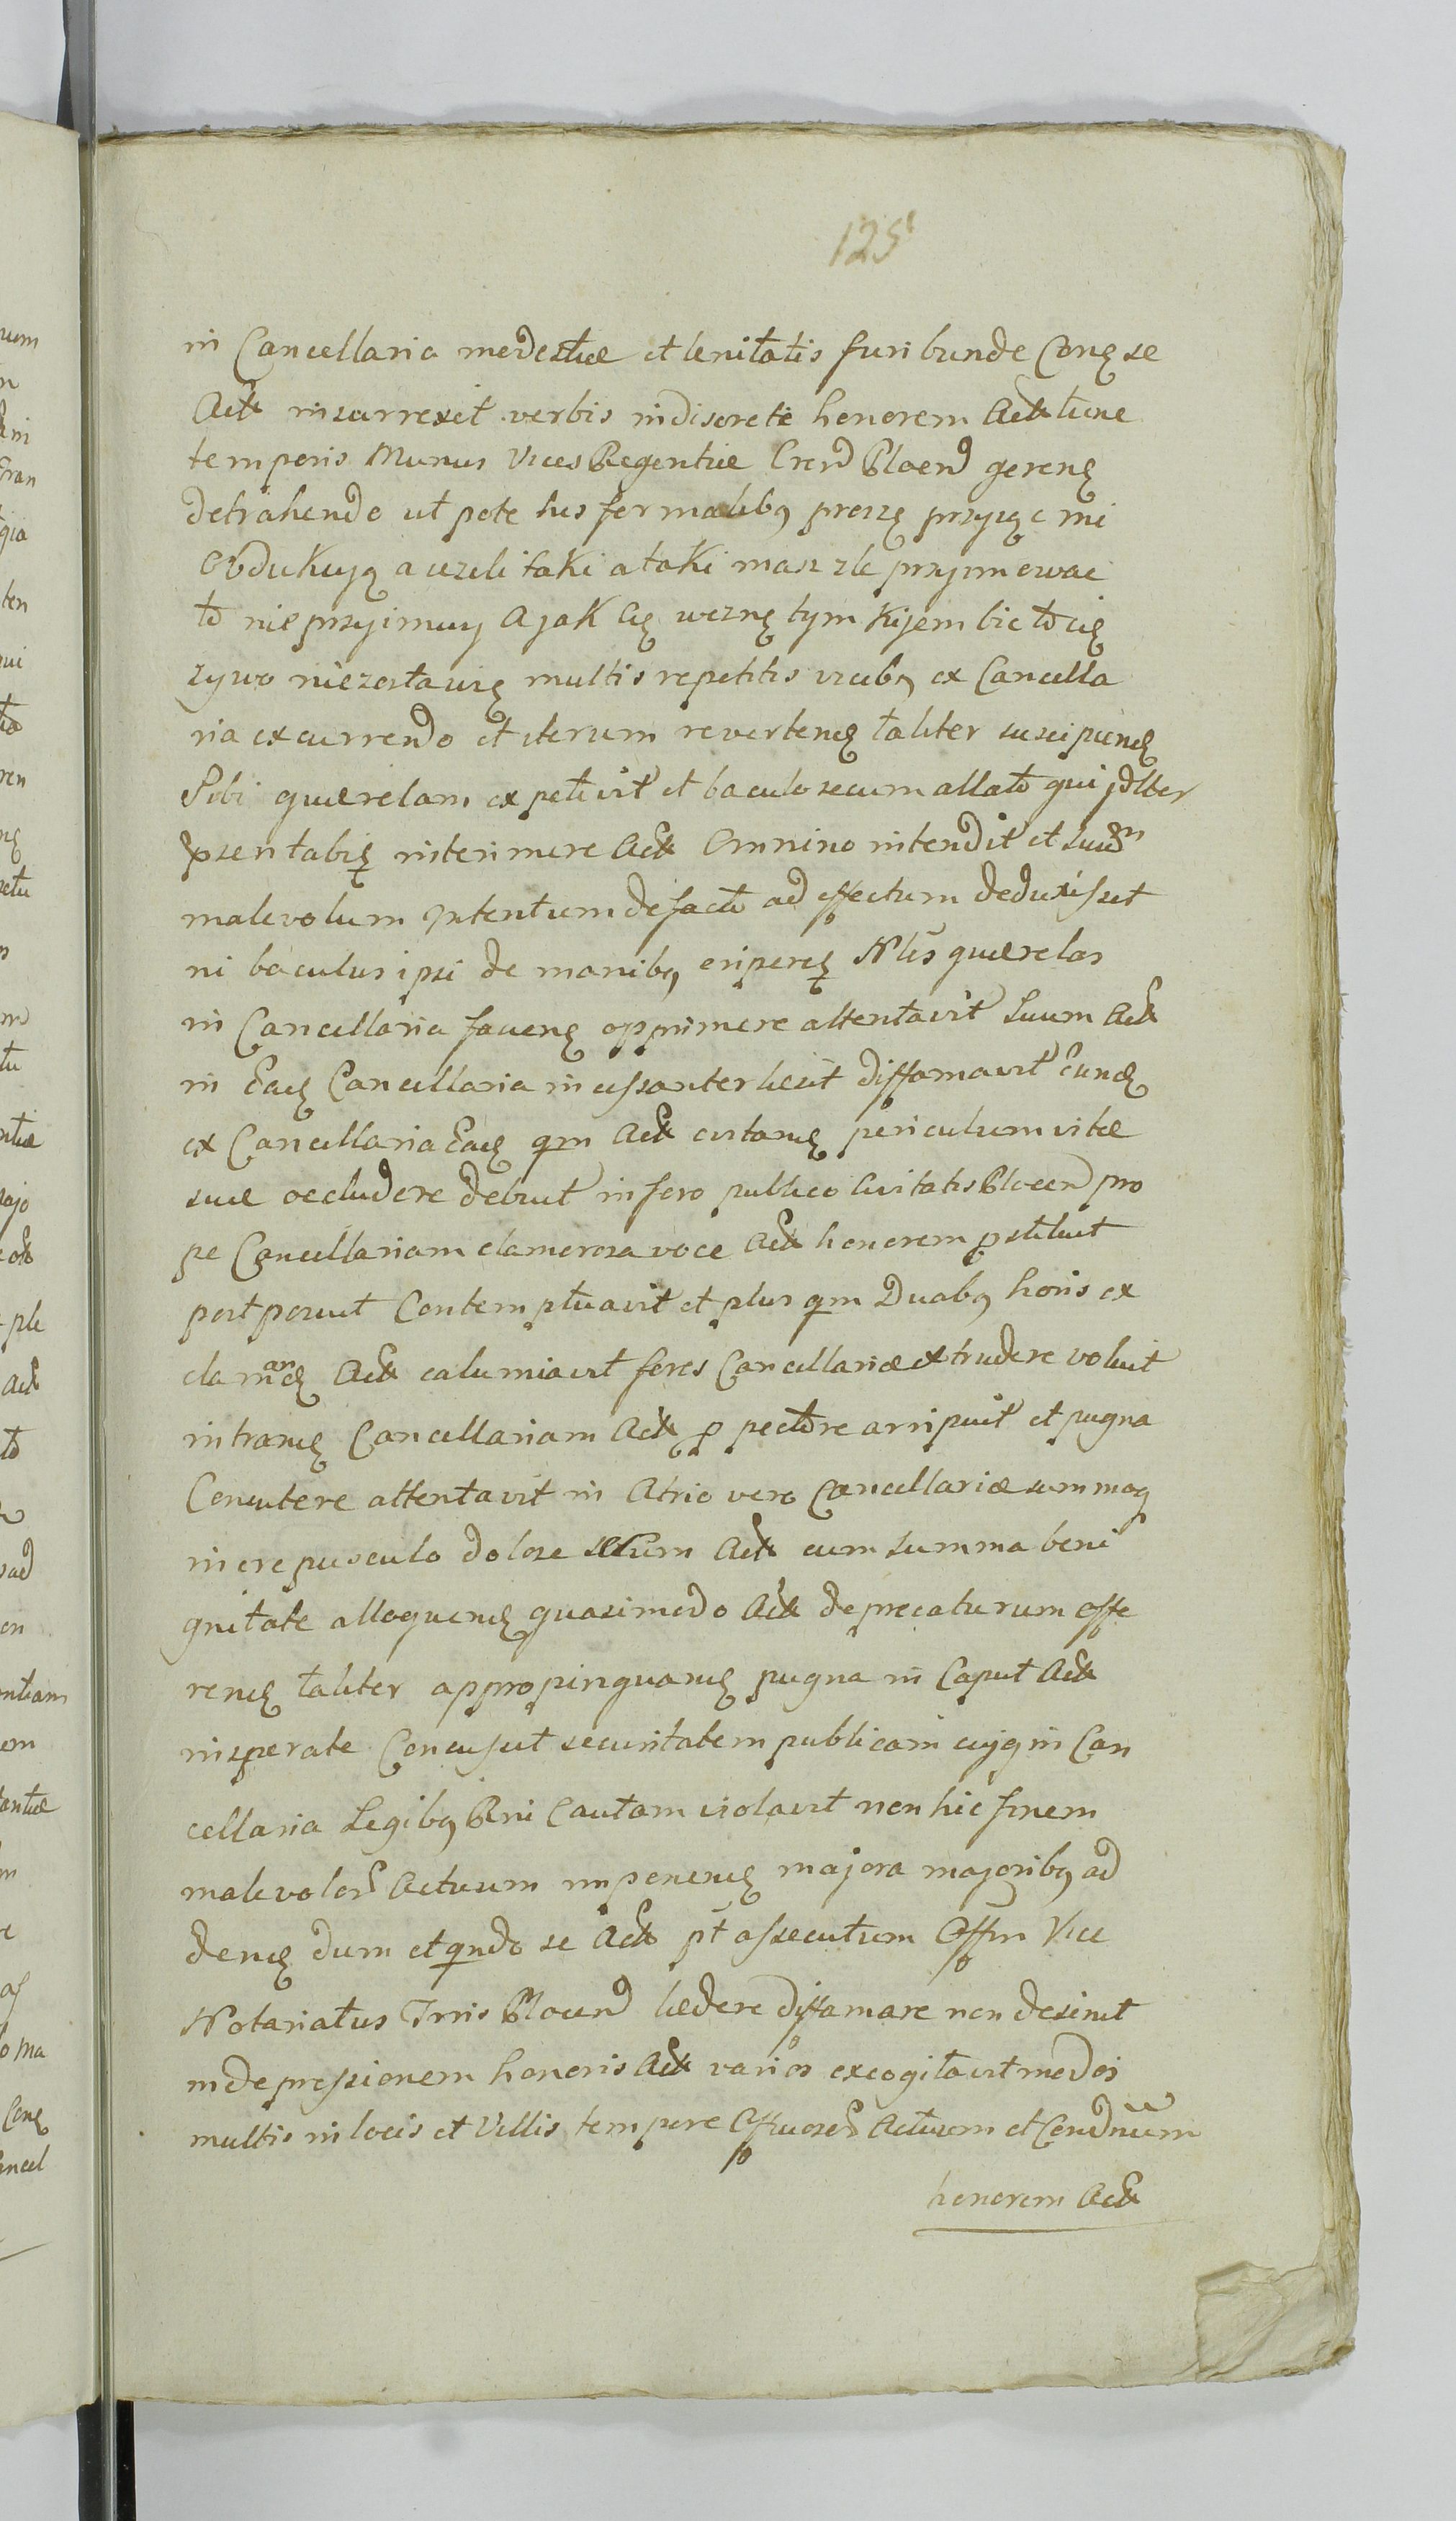 125
in Cancellaria modestiæ et lenitatis furibunde Conę se
Actæ insurrexit verbis indiscrete honorem Actæ tunc
temporis Munus Vices Regentiæ Cren͠d Ploen͠d gerenę
detrahendo ut pote his formalibꝰ proszę przysęc mi
Obdukuyą a iezeli taki a taki masz zle przyimowac
to nieprzyimuy A jak Cię weznę tym Kijem bic to cię
zywo niezostawię multis repetitis vicibꝰ ex Cancella
ria excurrendo et iterum revertenę taliter suscipienę
Sibi querelam expetivit et baculo secum allato qui jdlter
pręsentabię interimere Actæ Omnino intendit et suum
malevolum Intentum de facto ad effectum deduxisset
ni baculus ipsi de manibꝰ eriperę Nlīs querelas
in Cancellaria favenę opprimere attentavit Suum Actæ
in Eadę Cancellaria incessanter lęsit diffamavit Eundę
ex Cancellaria Eadę qm Actæ evitanę periculum vitæ
suæ occludere debuit in foro publico Civitatis Plocen͠ pro
pe Cancellariam clamorosa voce Actæ honorem pstituit
postposuit Contemptuavit et plus qm Duabꝰ horis ex
clamanę Actæ calumiavit fores Cancellariæ extrudere voluit
intranę Cancellariam Actæ p pectore arripuit et pugna
Concutere attentavit in Atrio vero Cancellariæ summoq
in crepusculo dolose Actæ cum summa beni
gnitate alloquenę quasimodo Actæ deprecaturum offe
renę taliter appropinquanę pugna in Caput Actæ
insperate Concussit securitatem publicam cujq in Can
cellaria Legibꝰ Rni Cautam violavit non hic finem
malevolor͠ Actuum imponenę majora majoribꝰ ad
denę dum et qndo se Actæ pt assecutum Offm Vice
Notariatus Trris Plocen͠d lædere diffamare non desinit
in depressionem honoris Actæ varios excogitavit modos
multis in locis et Villis tempore Offuosor͠ Actuum et Cond̃num
honorem Actæ